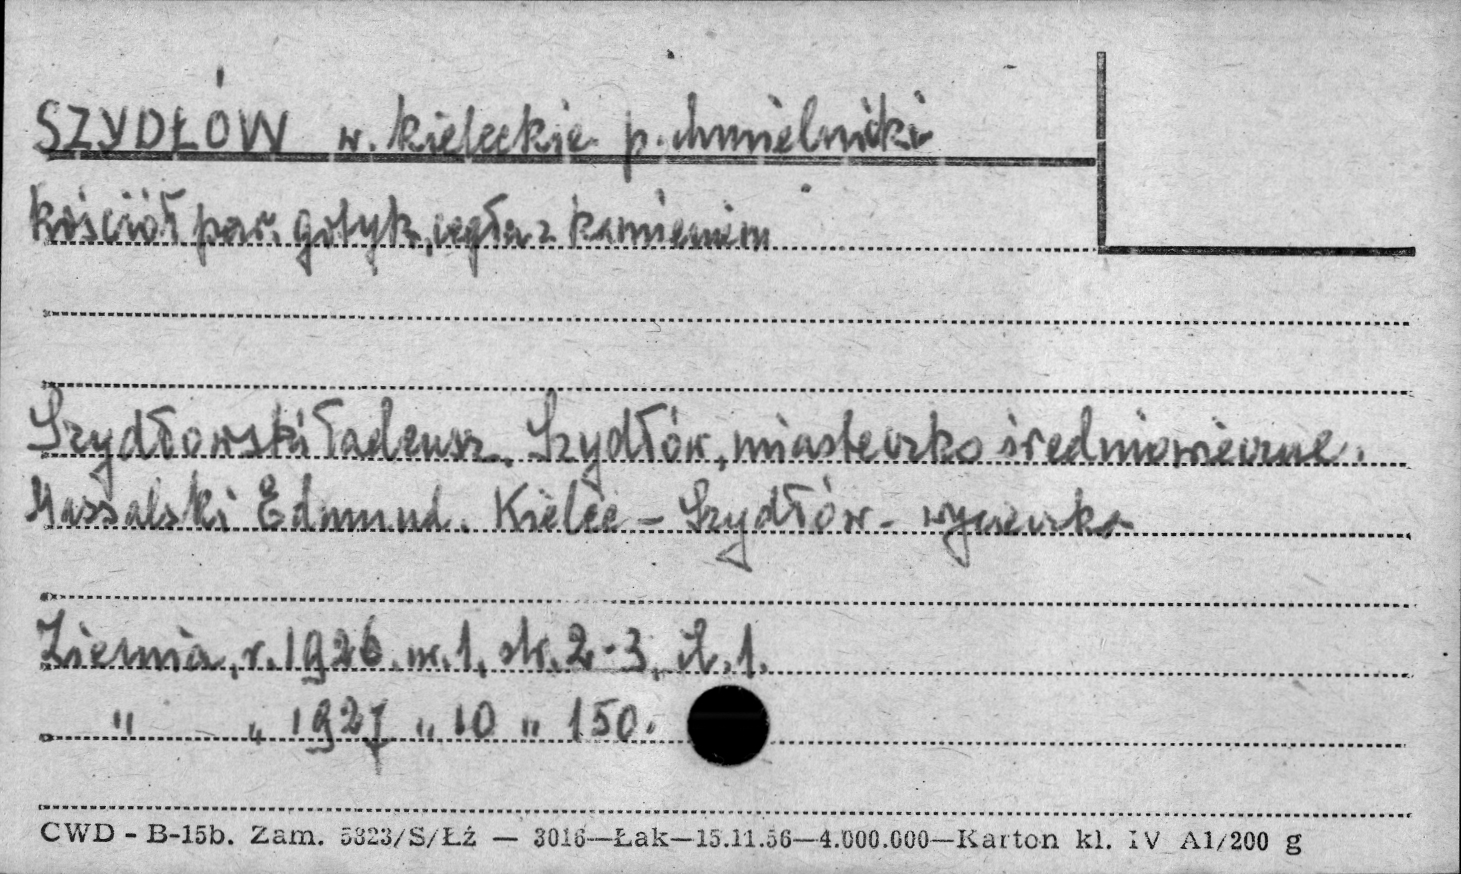 SZYDŁÓW w. kieleckie p. chmielnicki
kościół par. gotyk, cegła z kamieniem
Szydłowski Tadeusz. Szydłów, miasteczko średniowieczne.
Massalski Edmund. Kielce - Szydłów - wycieczka
Ziemia, r. 1926. nr. 1, str. 2-3, il. 1.
" " 1927 " 10 " 150.
CWD - B-15b. Zam. 5323/S/Łź — 3016—Łak—15.11.56—4.000.000—Karton kl. IV A1/200 g